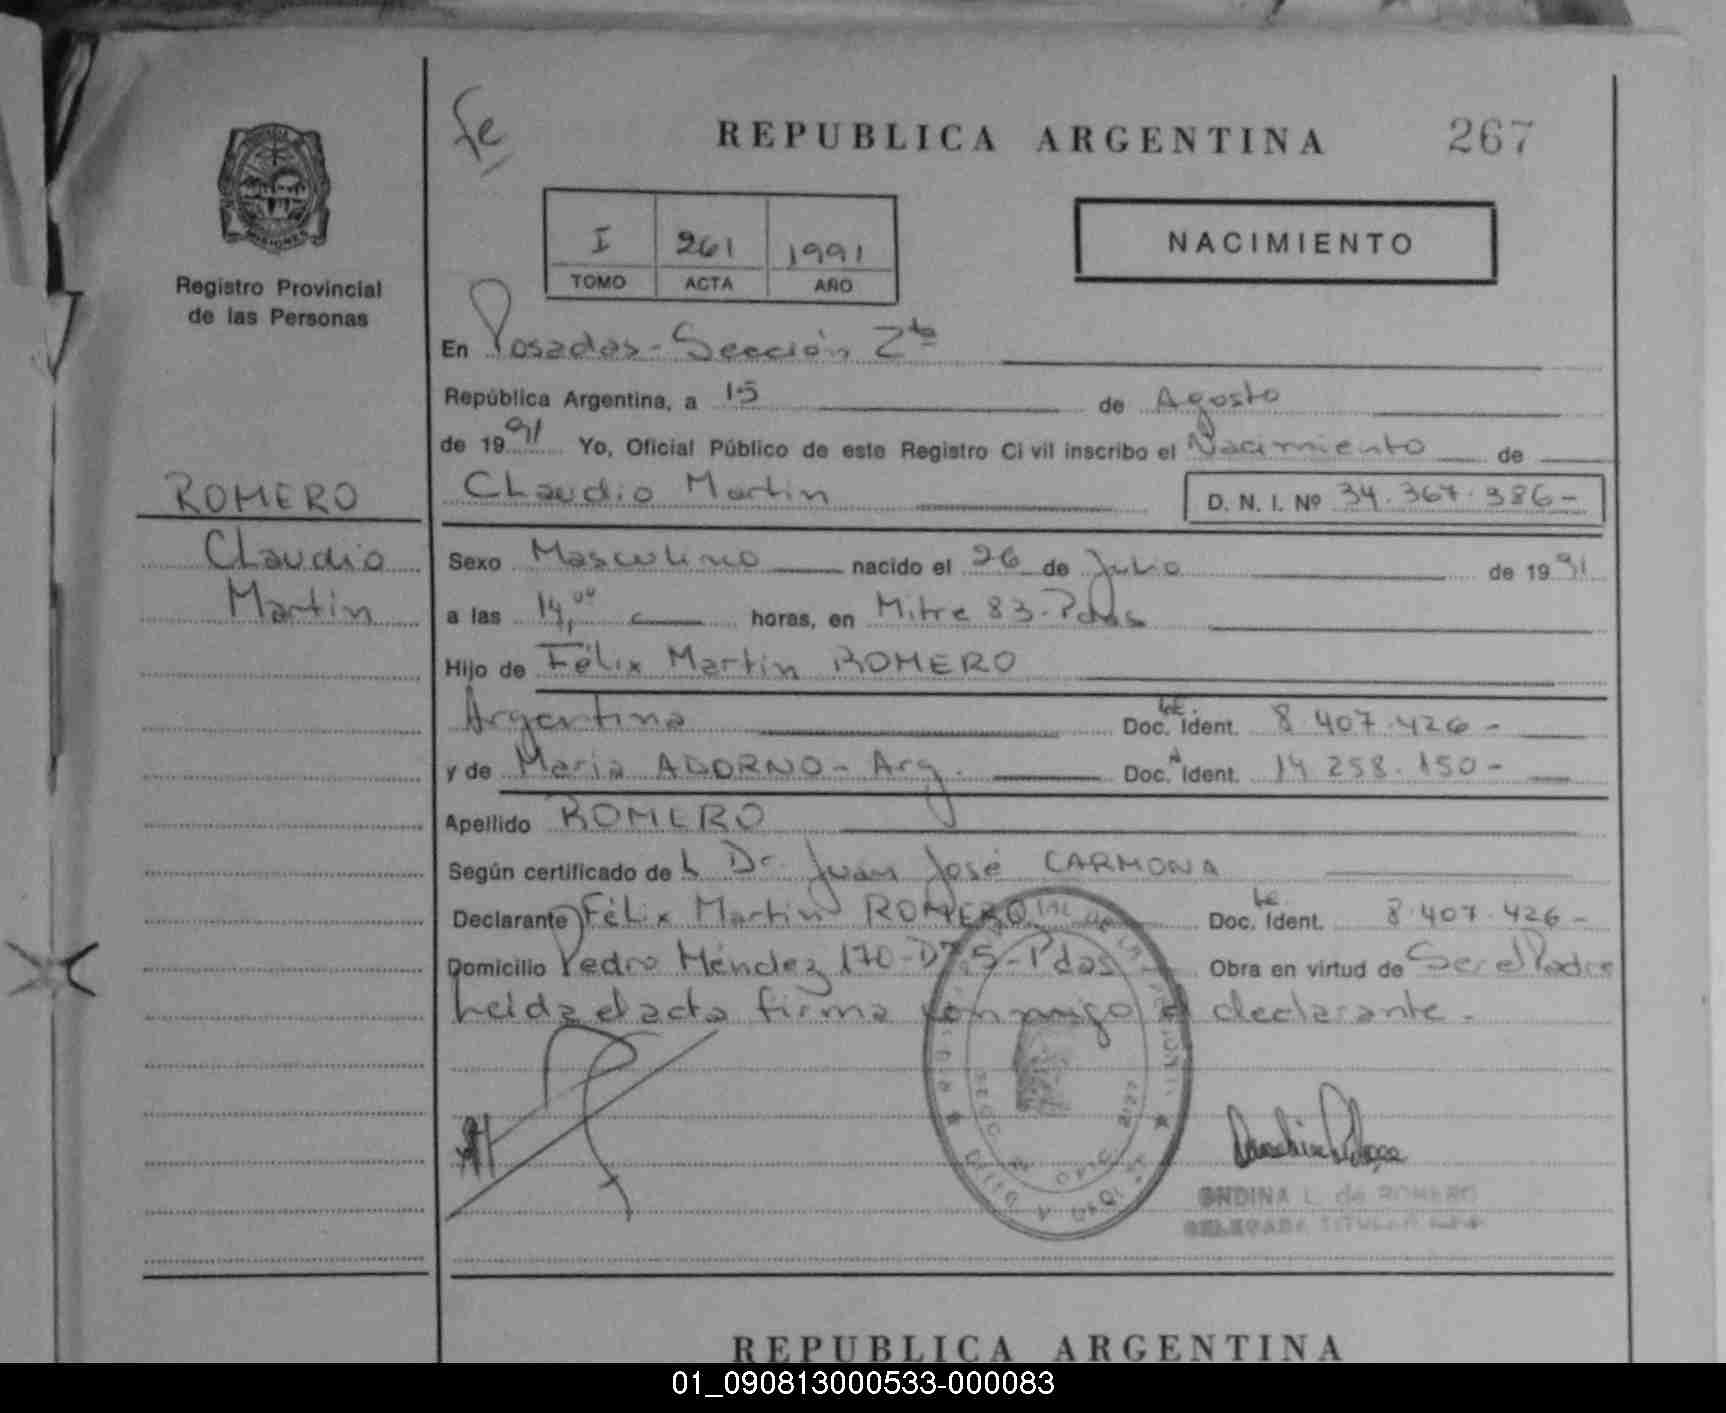 fe
REPUBLICA ARGENTINA 267
MISIONES
Registro Provincial
de las Personas
I 261 1991
TOMO ACTA AÑO
NACIMIENTO
En Posadas - Sección 2da
República Argentina, a 15 de Agosto
de 1991 Yo, Oficial Público de este Registro Civil inscribo el Nacimiento de
Claudio Martin D. N. I. Nº 34.367.386-
ROMERO
Claudio
Martin
Sexo Masculino nacido el 26 de Julio de 1991
a las 14,00 horas, en Mitre 83 - Pdas
Hijo de Félix Martin ROMERO
Argentina Doc. Ident. L.E. 8.407.426-
y de Maria ADORNO - Arg. Doc. Ident. 14.258.150-
Apellido ROMERO
Según certificado del Dr. Juan José CARMONA
Declarante Félix Martin ROMERO Doc. Ident. L.E. 8.407.426-
Domicilio Pedro Méndez 170 - Pdas Obra en virtud de Ser el Padre
Leida el acta firma conmigo el declarante.
ONDINA L. de ROMERO
DELEGADA TITULAR
REPUBLICA ARGENTINA
01_090813000533-000083